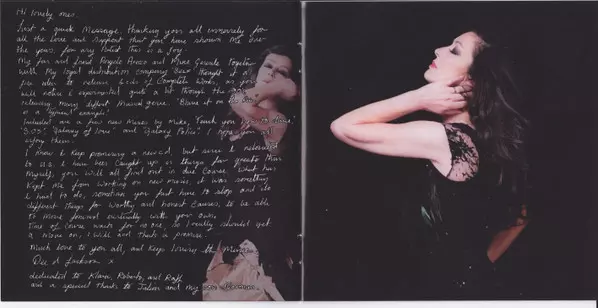 Hi lovely ones.
Just a quick Message, thanking you all immensely for
all the love and support that you have shown Me over
the years. for any Artist this is a joy.
My fan and friend Angelo Arosio and Mine Gamale
with My loyal distribution company thought it a
idea to release a cd of Complete Works, as you
will notice I experimented quite a bit through the
releasing many different Musical genre. 'Blame it on the Rain'
is a typical example!
Included are a few new Mixes by Mike, 'Teach you how to dance'
'S.O.S', 'Galaxy of Love' and 'Galaxy Police'. I hope you all
enjoy them.
I know I keep promising a new cd, but since I returned
to U.S. I have been caught up in things far greater than
Myself, you will all find out in due Course. What has
kept me from working on new music, it was something
I had to do, sometimes you just have to stop and do
different things for worthy and honest causes, to be able
to move forward with your own.
time of course waits for no one, so I really should get
a move on, I will and thats a promise.
Much love to you all, and keep loving the Music.
Dee D Jackson x
dedicated to Kharu, Roberto, and
and a special thanks to and my